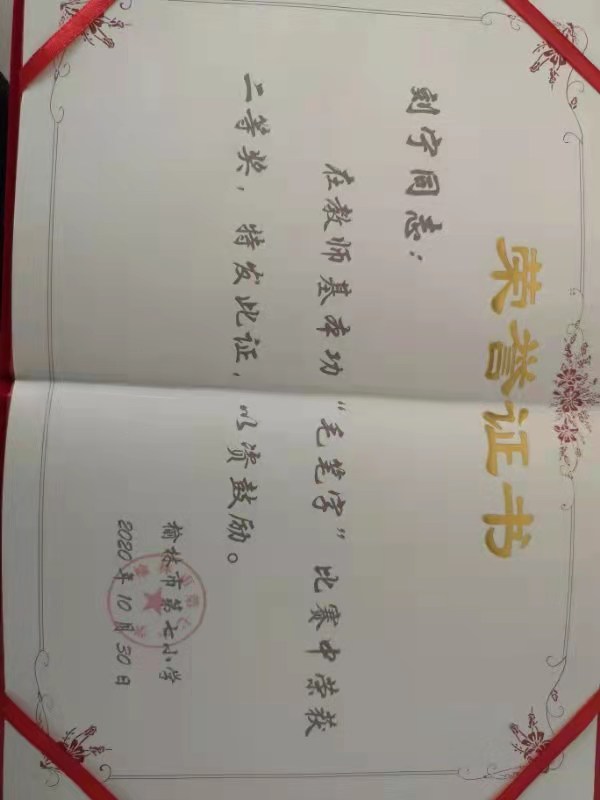 荣誉证书
刘宇同志：
在教师基本功“毛笔字”比赛中荣获
二等奖，特发此证，以资鼓励。
榆林市第七小学
2020年10月30日